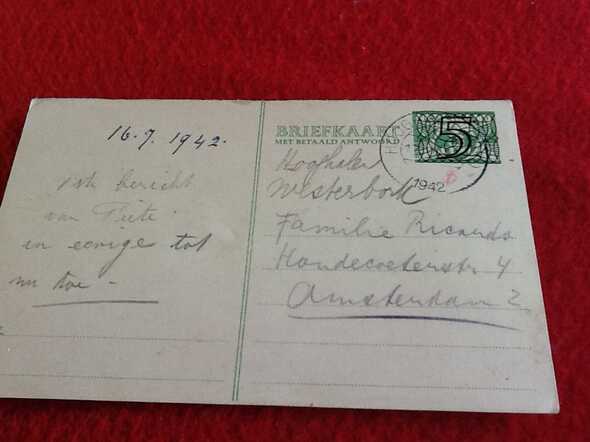 16.7.1942.
1ste bericht
van Piete.
en eenige tot
nu toe -
BRIEFKAART
MET BETAALD ANTWOORD
5
1942
Hooghalen
Westerbork
Familie Ricardo
Hondecoeterstr 4
Amsterdam Z